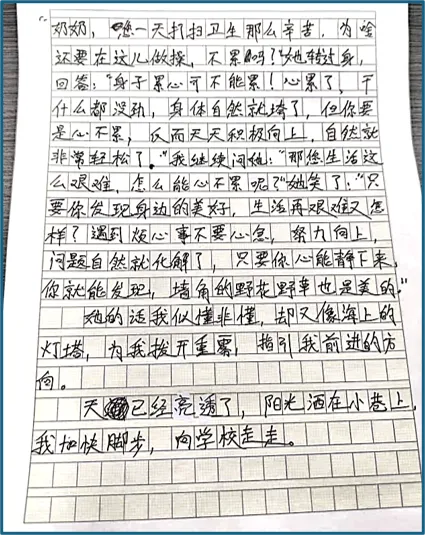 “奶奶，您一天打扫卫生那么辛苦，为啥
还要在这儿做操，不累吗？”她转过身，
回答：“身子累心可不能累！心累了，干
什么都没劲，身体自然就垮了，但你要
是心不累，反而天天积极向上，自然就
非常轻松了。”我继续问她：“那您生活这
么艰难，怎么能心不累呢？”她笑了：“只
要你发现身边的美好，生活再艰难又怎
样？遇到烦心事不要心急，努力向上，
问题自然就化解了，只要你心能静下来，
你就能发现，墙角的野花野草也是美的。”
她的话我似懂非懂，却又像海上的
灯塔，为我拨开重雾，指引我前进的方
向。
天已经亮透了，阳光洒在小巷上，
我加快脚步，向学校走走。